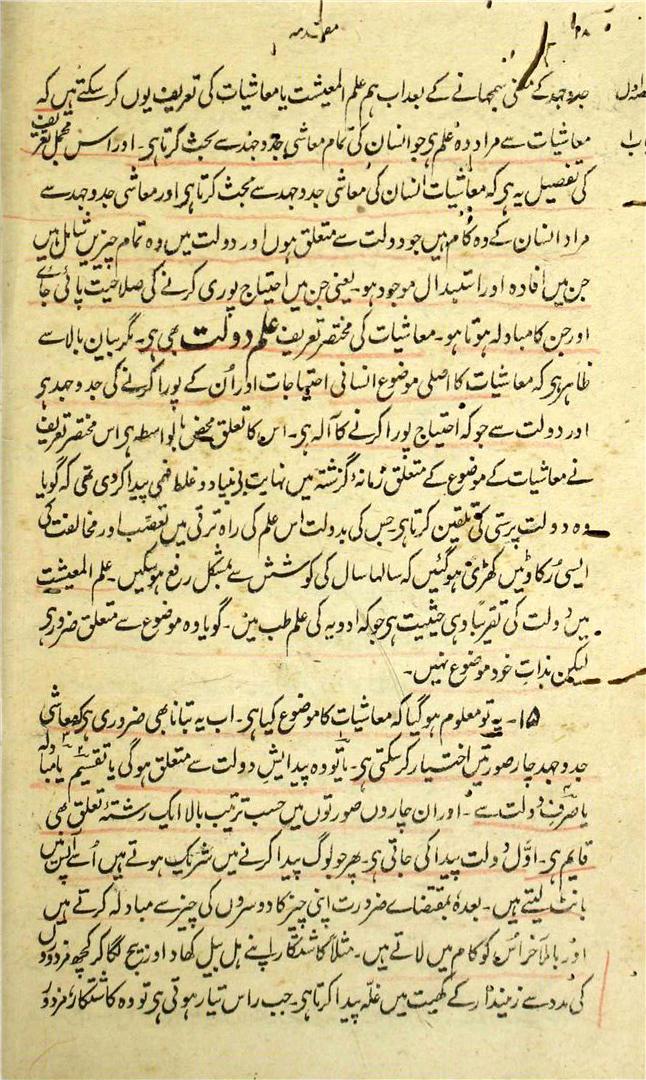 ۲۸
مقدمہ
جدوجہد کے معنی سمجھانے کے بعد اب ہم علم المعیشت یا معاشیات کی تعریف یوں کر سکتے ہیں کہ
معاشیات سے مراد وہ علم ہی جو انسان کی تمام معاشی جدوجہد سے بحث کرتا ہی۔ اور اس مجمل تعریف
کی تفصیل یہ ہی کہ معاشیات انسان کی معاشی جدوجہد سے بحث کرتا ہی اور معاشی جدوجہد سے
مراد انسان کے وہ کام ہیں جو دولت سے متعلق ہوں اور دولت میں وہ تمام چیزیں شامل ہیں
جن میں افادہ اور استبدال موجود ہو۔ یعنی جن میں احتیاج پوری کرنے کی صلاحیت پائی جاے
اور جن کا مبادلہ ہوتا ہو۔ معاشیات کی مختصر تعریف علم دولت بھی ہی۔ مگر بیان بالا سے
ظاہر ہی کہ معاشیات کا اصلی موضوع انسانی احتیاجات اور اُن کے پورا کرنے کی جدوجہد ہی
اور دولت سے جو کہ احتیاج پورا کرنے کا آلہ ہی۔ اس کا تعلق محض بالواسطہ ہی اس مختصر تعریف
نے معاشیات کے موضوع کے متعلق زمانہ گزشتہ میں نہایت بی بنیاد و غلط فہمی پیدا کر دی تھی کہ گویا
وہ دولت پرستی کی تلقین کرتا ہی۔ جس کی بدولت اس علم کی راہ ترقی میں تعصب اور مخالفت کی
ایسی رکاوٹیں کھڑی ہو گئیں کہ سالہا سال کی کوشش سے بمشکل رفع ہو سکیں۔ علم المعیشت
میں دولت کی تقریباً وہی حیثیت ہی جو کہ ادویہ کی علم طب میں۔ گویا وہ موضوع سے متعلق ضروری
لیکن بذات خود موضوع نہیں۔
۱۵۔ یہ تو معلوم ہو گیا کہ معاشیات کا موضوع کیا ہی۔ اب یہ بتانا بھی ضروری ہی کہ معاشی
جدوجہد چار صورتیں اختیار کر سکتی ہی۔ یا تو وہ پیدایش دولت سے متعلق ہو گی یا تقسیم یا مبادلہ
یا صرف دولت سے۔ اور ان چاروں صورتوں میں حسب ترتیب بالا ایک رشتۂ تعلق بھی
قایم ہی۔ اوّل دولت پیدا کی جاتی ہی۔ پھر جو لوگ پیدا کرنے میں شریک ہوتے ہیں اُسے آپس میں
بانٹ لیتے ہیں۔ بعدہٗ بمقتضاے ضرورت اپنی چیز کا دوسروں کی چیز سے مبادلہ کرتے ہیں
اور بالآخر اُس کو کام میں لاتے ہیں۔ مثلاً کاشتکار اپنے ہل بیل کھاد اور بیج لگا کر کچھ مزدوروں
کی مدد سے زمیندار کے کھیت میں غلّہ پیدا کرتا ہی۔ جب راس تیار ہوتی ہی تو وہ کاشتکار، مزدور